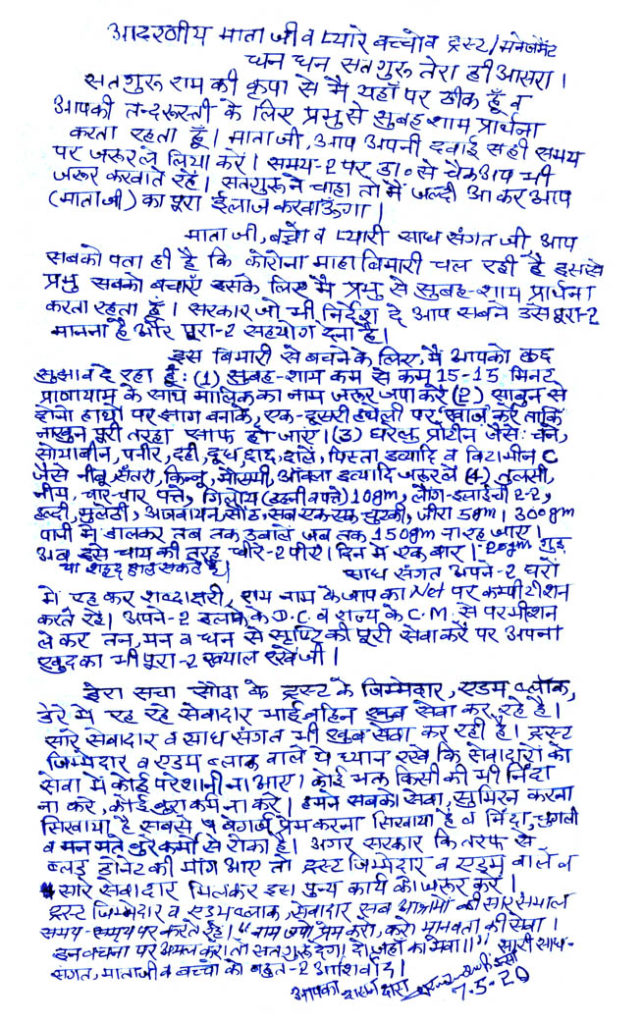 आदरणीय माता जी व प्यारे बच्चो व ट्रस्ट/मनेजमैंट
धन धन सतगुरु तेरा ही आसरा।
सतगुरु राम की कृपा से मैं यहाँ पर ठीक हूँ व
आपकी तन्दरुस्ती के लिए प्रभु से सुबह शाम प्रार्थना
करता रहता हूँ। माता जी, आप अपनी दवाई सही समय
पर जरुर ले लिया करें। समय-2 पर डा॰ से चैकआप भी
जरूर करवाते रहें। सतगुरु ने चाहा तो मैं जल्दी आ कर आप
(माता जी) का पूरा ईलाज करवाऊंगा।
माता जी, बच्चो व प्यारी साध संगत जी, आप
सबको पता ही है कि कोरोना माहा बिमारी चल रही है इससे
प्रभु सबको बचाएँ इसके लिए मैं प्रभु से सुबह-शाम प्रार्थना
करता रहता हूँ। सरकार जो भी निर्देश दे आप सबने उसे पूरा-2
मानना है और पूरा-2 सहयोग देना है।
इस बिमारी से बचने के लिए, मैं आपको कुछ
सुझाव दे रहा हूँ: (1) सुबह-शाम कम से कम 15-15 मिनट
प्राणायाम के साथ मालिक का नाम जरुर जपा करें (2) साबुन से
दोनो हाथों पर झाग बनाके, एक-दूसरी हथेली पर खाज करें ताकि
नाखुन पूरी तरहा साफ हो जाएं। (3) घरेलु प्रोटीन जैसे: चने,
सोयाबीन, पनीर, दही, दूध, दालें, पिस्ता इत्यादि व विटामीन C
जैसे नीबू, सँतरा, किन्नू, मौसम्मी, आँवला इत्यादि जरुर लें (4) तुलसी,
नीम, चार-चार पत्ते, गिलोय (टहनी व पत्ते) 10gm, लौंग-इलाईची 2-2,
हल्दी, मुलेठी, अजवायन, सौंठ, सब एक एक चुटकी, जीरा 5gm। 300gm
पानी में डालकर तब तक उबालें जब तक 150gm ना रह जाए।
अब इसे चाय की तरह धीरे-2 पीएं। दिन में एक बार। 20gm गुड़
या शहद डाल सकते हैं।
साध संगत अपने-2 घरों
में रह कर शब्दाक्षरी, राम नाम के जाप का Net पर कम्पीटीशन
करते रहें। अपने-2 इलाके के D.C. व राज्य के C.M. से परमीशन
ले कर तन, मन व धन से सृष्टि की पूरी सेवा करें पर अपना
खुद का भी पूरा-2 खयाल रखें जी।
डेरा सच्चा सौदा के ट्रस्ट के जिम्मेदार, एडम ब्लॉक,
डेरे में रह रहे सेवादार भाई बहिन खुब सेवा कर रहे है।
सारे सेवादार व साध संगत भी खुब सेवा कर रही है। ट्रस्ट
जिम्मेदार व एडम ब्लाक वाले ये ध्यान रखें कि सेवादारों को
सेवा में कोई परेशानी ना आए। कोई भक्त किसी की भी निंदा
ना करे, कोई बुरा कर्म ना करे। हमने सबको सेवा, सुमिरन करना
सिखाया है सबसे बेगर्ज प्रेम करना सिखाया है व निंदा, चुगली
व मन मते बुरे कर्मों से रोका है। अगर सरकार कि तरफ से
ब्लड डोनेट की मांग आए तो ट्रस्ट जिम्मेदार व एडम वाले व
सारे सेवादार मिलकर इस पुन्य कार्य को जरुर करें।
ट्रस्ट जिम्मेदार व एडम ब्लाक, सेवादार सब आश्रमों की सार संभाल
समय-समय पर करते रहें। "नाम जपो, प्रेम करो, करो मानवता की सेवा।
इन वचनों पर अमल करो तो सतगुरु देगा दो जहाँ का मेवा॥" सारी साध-
संगत, माता जी व बच्चों को बहुत-2 आशिर्वाद।
आपका
7.5-20